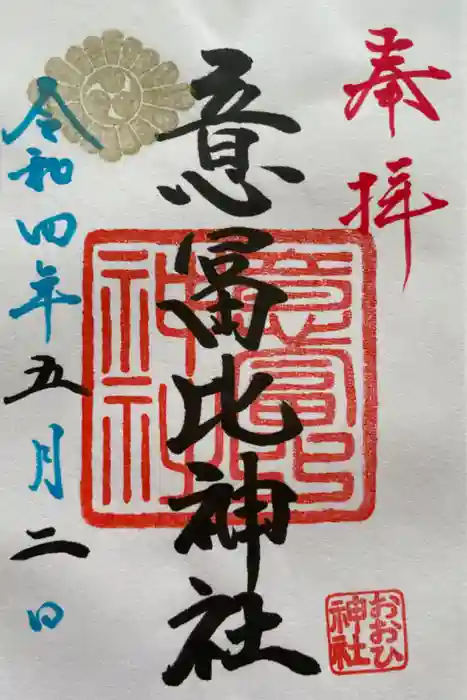 奉拝
意冨比神社
意冨比神社
令和四年五月二日
おおひ神社